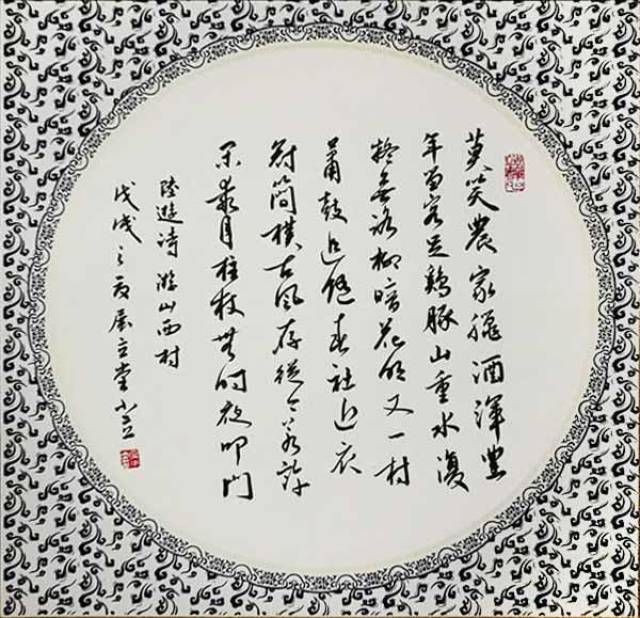 莫笑農家臘酒渾豊
年留客足鷄豚山重水復
疑無路柳暗花明又一村
簫鼓追隨春社近衣
冠簡樸古風存從今若許
閑乘月柱杖無时夜叩门
陸遊詩游山西村
戊戌之夏立堂